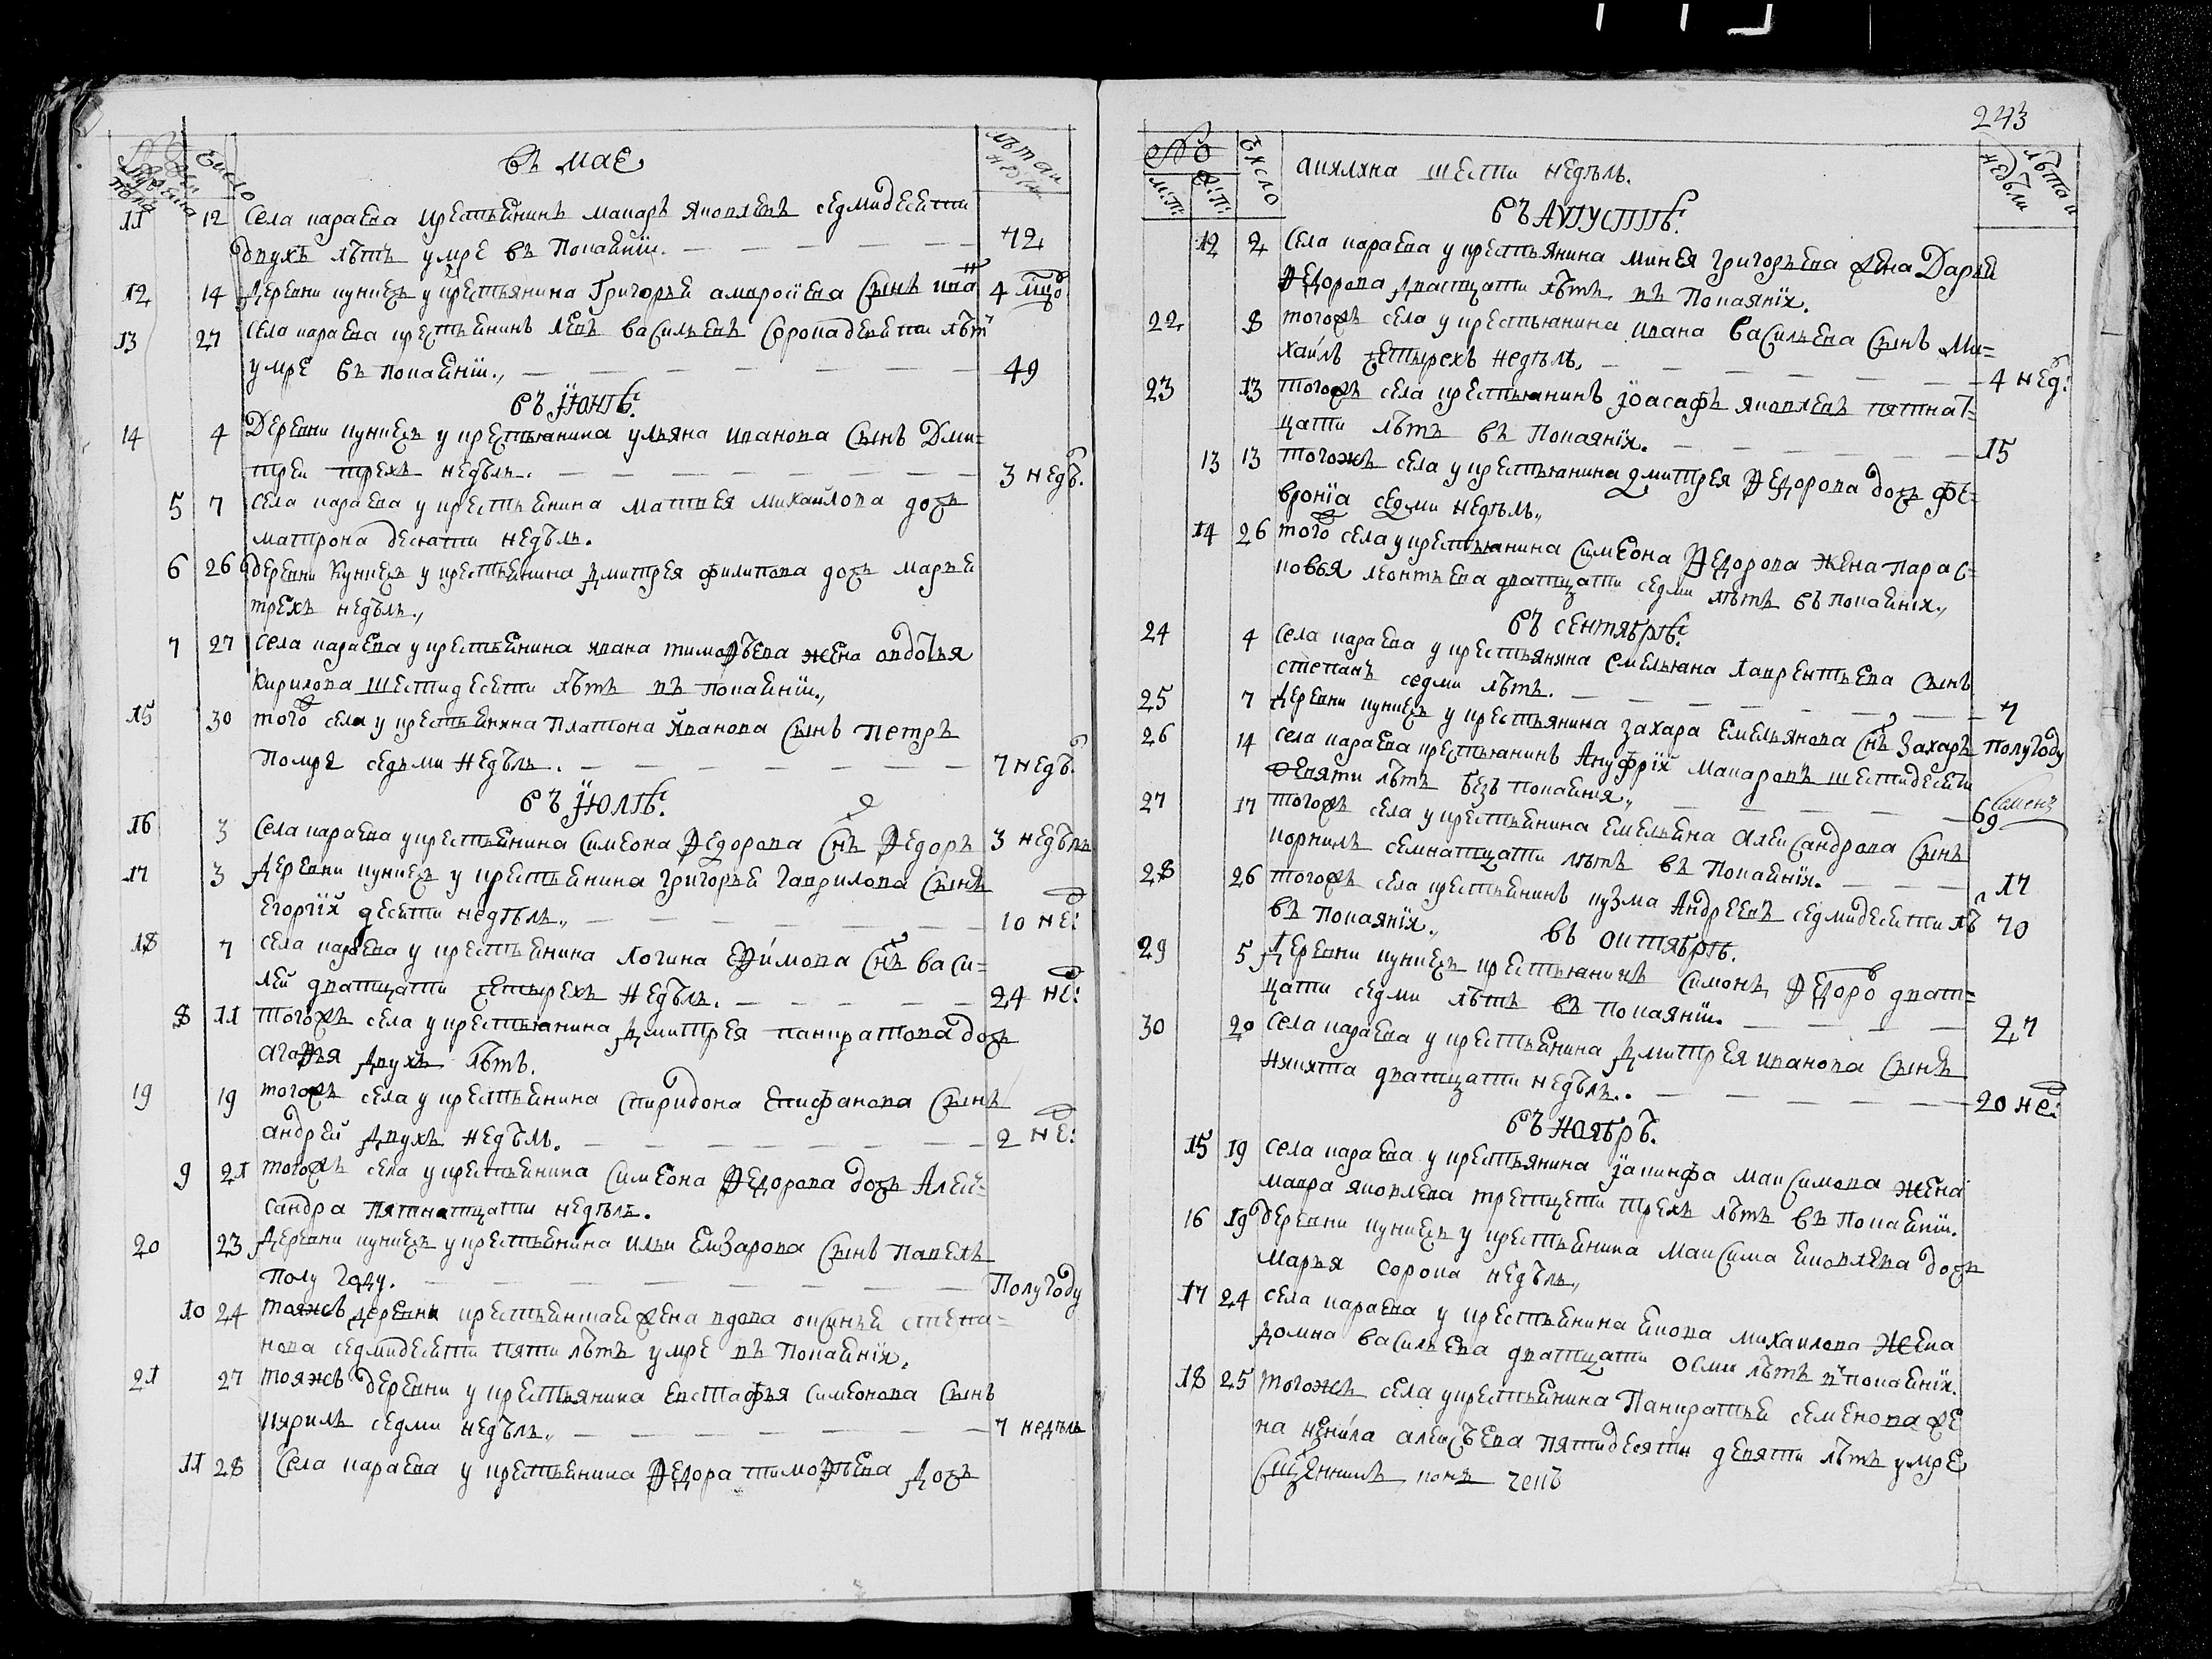 въ мае
число
лѣта и недѣли
11 12 Села караева крестьянинъ макаръ яковлевъ седмидесяти
двухъ лѣтъ умре въ покаянїи. 72
12 14 Деревни куницъ у крестьянина Григорья амвросїева сынъ 4
13 27 села караева крестьянинъ левъ васильевъ сорокадевети лѣт
умре въ покаянїи., 49
въ Їюнѣ.
14 4 Деревни куницъ у крестьянина ульяна иванова сынъ Дми=
трей трехъ недѣль. 3 недѣ.
5 7 села караева у крестьянина матвея михаилова дочь
матрона десяти недѣль.
6 26 деревни Куницъ у крестьянина дмитрея филипова дочь марья
трехъ недѣль.,
7 27 села караева у крестьянина ивана тимофѣева жена овдотья
Кирилова шестидесяти лѣтъ въ покаянїи.,
15 30 того села у крестьянина платона иванова сынъ петръ
помре седьми недѣль. 7 недѣ.
въ Їюлѣ.
16 3 Села караева у крестьянина симеона Федорова снъ Федоръ 3 недѣли
17 3 Деревни куницъ у крестьянина григорья гаврилова сынъ
Егоргїй десяти недѣль., 10 не:
18 7 села караева у крестьянина логина ефимова снъ васи=
лей дватцати четырехъ недѣль. 24 не:
8 11 тогожъ села у крестьянина дмитрея панкратова дочь
агафья двухъ лѣтъ.
19 19 тогожъ села у крестьянина спиридона епифанова сынъ
андрей двухъ недѣль. 2 не:
9 21 тогожъ села у крестьянина симеона Федорова дочь Алек=
сандра пятнатцати недѣль.
20 23 Деревни куницъ у крестьянина ильи елизарова сынъ павелъ
полу году. Полугоду
10 24 тояжъ деревни крестьянская жена вдова оксинья степа=
нова седмидесяти пяти лѣтъ умре въ покаянїи.
21 27 тояжъ деревни у крестьянина евстафья симеонова сынъ
кирилъ седми недѣль., 7 недѣль
11 28 Села караева у крестьянина Федора тимофѣева дочь
243
№
м:п: ж:п: число лѣта и недѣли
акилина шести недѣль.
въ Августѣ.
12 2 села караева у крестьянина минея григорьева жена Дарья
Федорова дватцати лѣтъ въ покаянїи.
22 8 тогожъ села у крестьянина ивана васильева сынъ Ми=
хаилъ четырехъ недѣль. 4 нед:
23 13 тогожъ села крестьянинъ їоасафъ яковлевъ пятнат=
цати лѣтъ въ покаянїи. 15
13 13 тогожъ села у крестьянина дмитрея Федорова дочь фе=
вронїа седми недѣль.,
14 26 того села у крестьянина симеона Федорова жена парас=
ковья леонтьева дватцати седми лѣтъ въ покаянїи.,
въ сентябрѣ.
24 4 села караева у крестьянина емельяна лаврентьева сынъ
степанъ седми лѣтъ. 7
25 7 Деревни куницъ у крестьянина захара емельянова снъ захаръ полугоду
26 14 села караева крестьянинъ Ануфрїй макаровъ шестидесяти
девяти лѣтъ безъ покаянїя., 69
27 17 тогожъ села у крестьянина емельяна александрова сынъ
корнилъ семнатцати лѣтъ въ покаянїи. 17
28 26 тогожъ села крестьянинъ кузма Андреевъ седмидесяти лѣ 70
въ покаянїи., въ октябрѣ.
29 5 Деревни куницъ крестьянинъ симонъ Федоро дват=
цати седми лѣтъ въ покаянїи. 27
30 20 села караева у крестьянина дмитрея иванова сынъ
никита дватцати недѣль.. 20 не:
въ ноябрѣ.
15 19 села караева у крестьянина їакинфа максимова жена
мавра яковлева третцети трехъ лѣтъ въ покаянїи.
16 19 деревни куницъ у крестьянина максима яковлева дочь
марья сорока недѣль.,
17 24 села караева у крестьянина якова михаилова жена
домна васильева дватцати осми лѣтъ в покаянїи.
18 25 тогожъ села у крестьянина Панкратья семенова же
на ненила алексѣева пятидесяти девяти лѣтъ умре